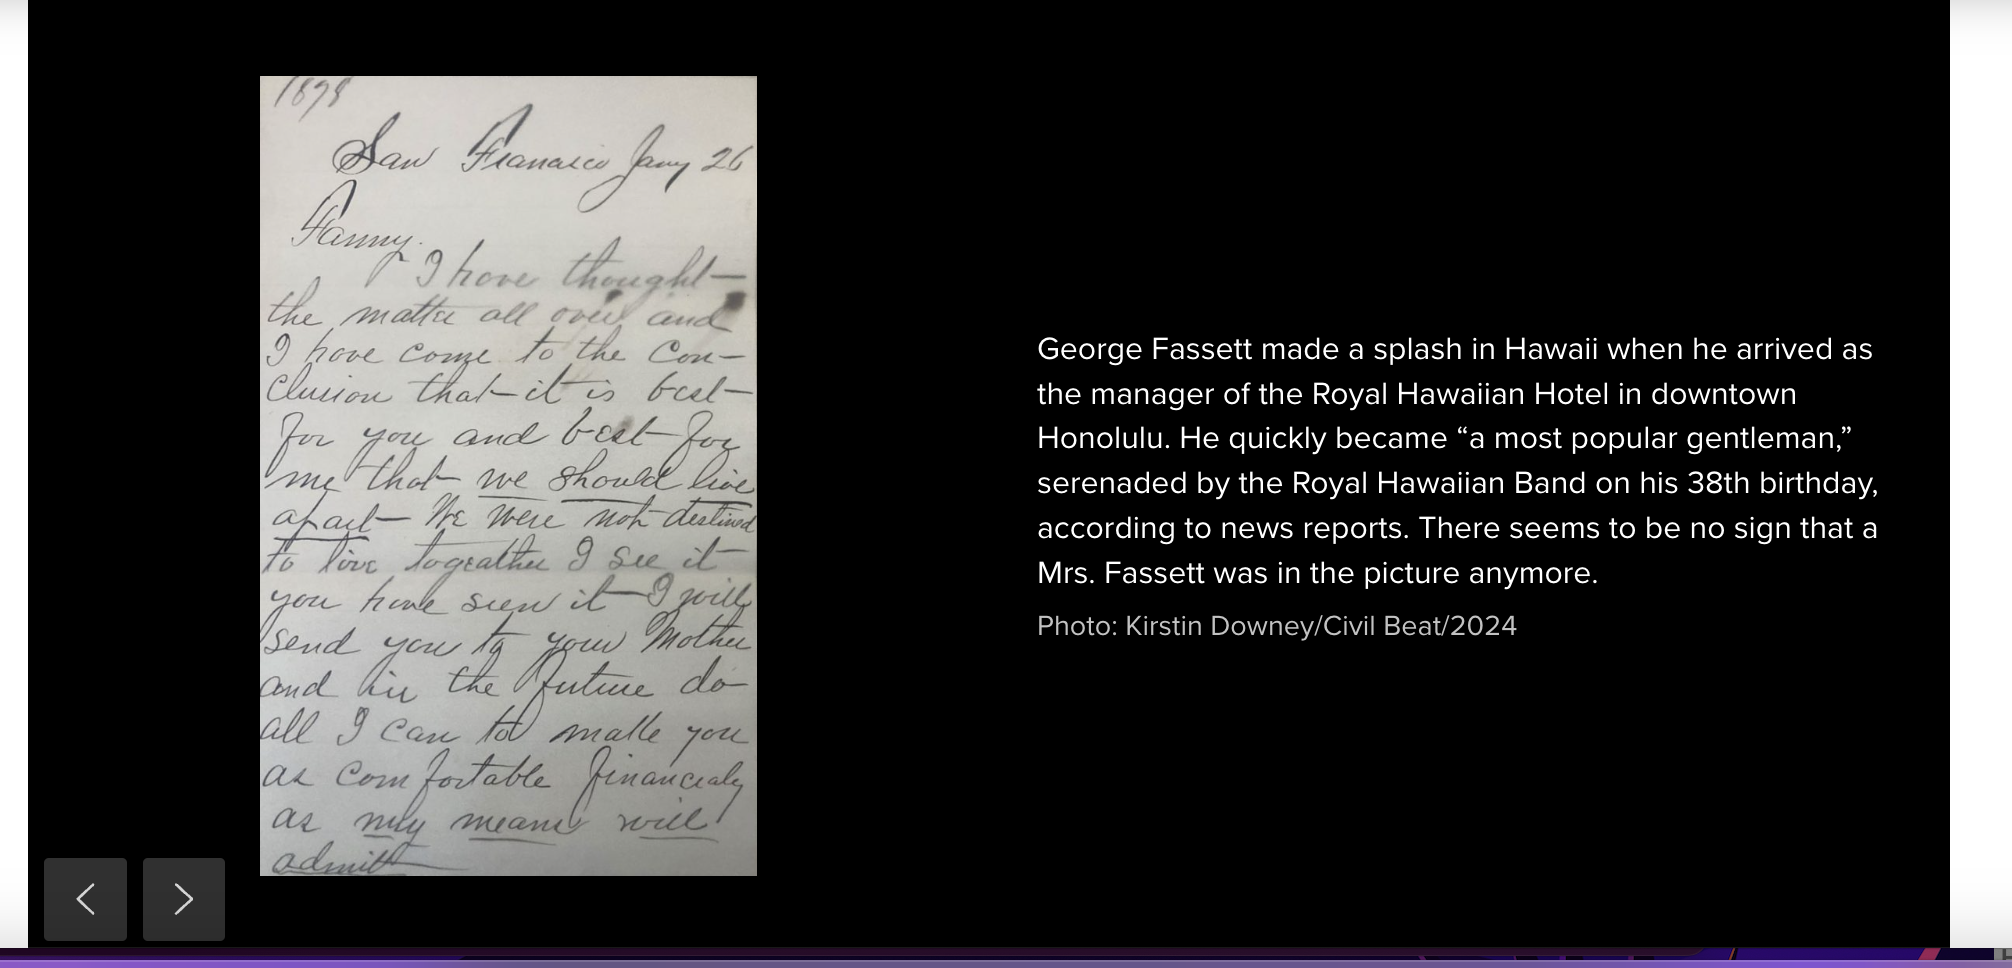 1878
San Francisco Jany 26
Fanny.
I have thought
the matter all over and
I have come to the Con-
clusion that it is best
for you and best for
me that we should live
apart We were not destined
to live togeather I see it
you have seen it I will
send you to your Mother
and in the future do
all I can to make you
as comfortable financialy
as my means will
admitt
George Fassett made a splash in Hawaii when he arrived as
the manager of the Royal Hawaiian Hotel in downtown
Honolulu. He quickly became “a most popular gentleman,”
serenaded by the Royal Hawaiian Band on his 38th birthday,
according to news reports. There seems to be no sign that a
Mrs. Fassett was in the picture anymore.
Photo: Kirstin Downey/Civil Beat/2024